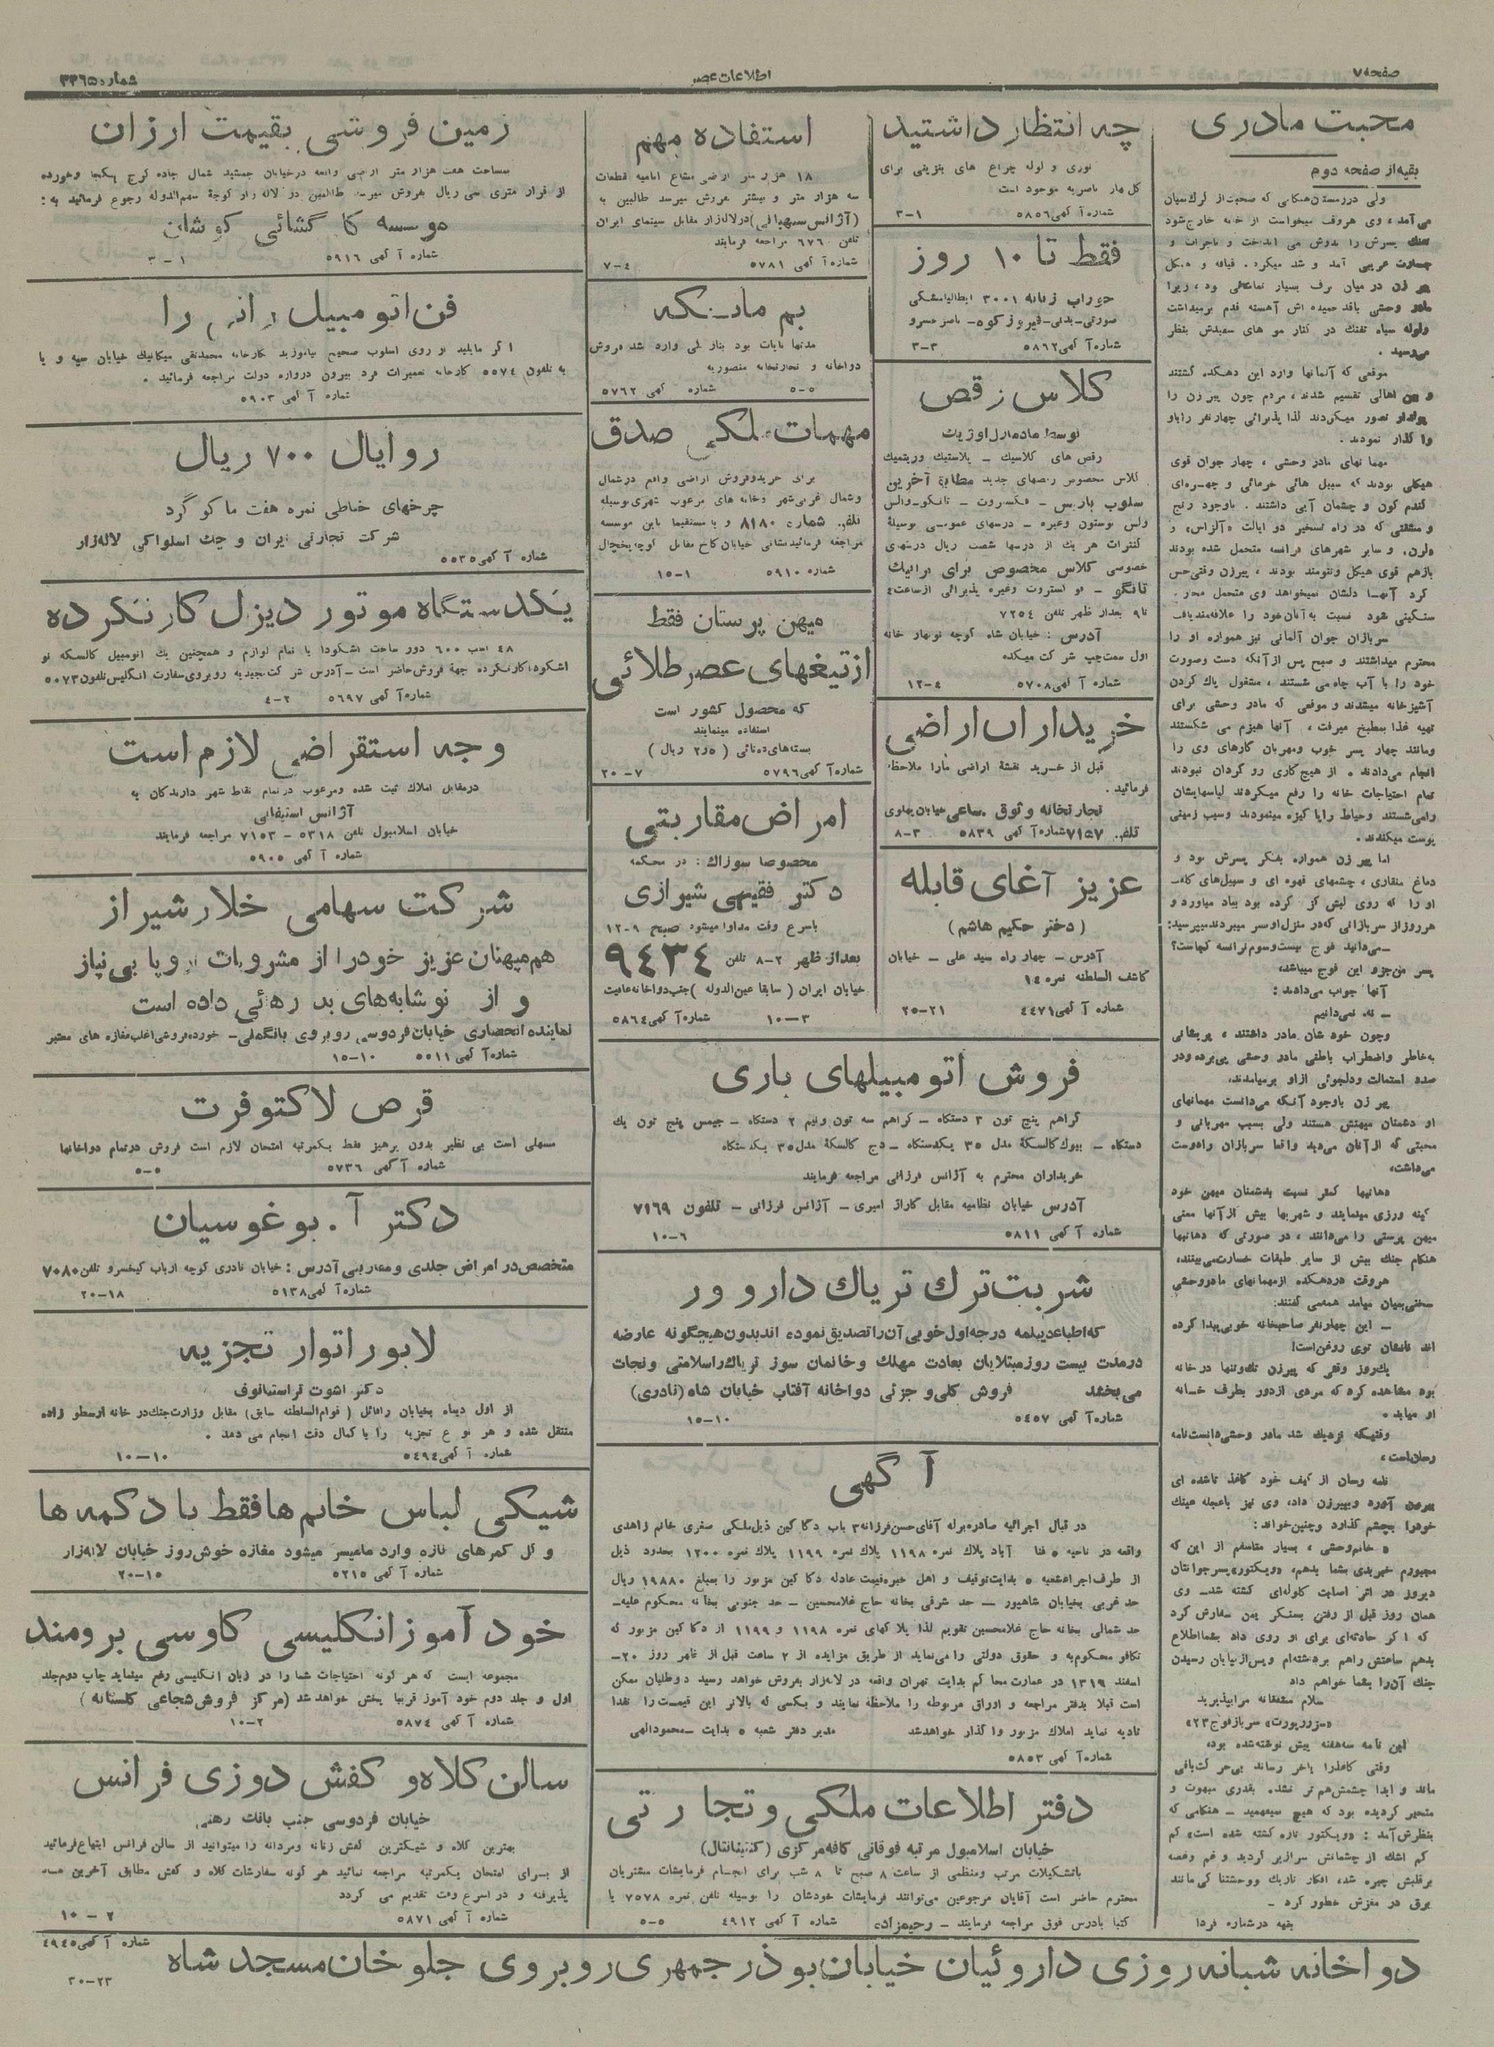 صفحه ۷
اطلاعات عصر
شماره ۳۳۶۵
محبت مادری
بقیه از صفحه دوم
موقعی که آلمانها وارد این دهکده گشتند
و بین اهالی تقسیم شدند، مردم چون پیرزن را
پولدار تصور میکردند لذا پذیرائی چهار نفر را باو
واگذار نمودند.
مهمانهای مادر وحشی، چهار جوان قوی
هیکلی بودند که سبیل هائی خرمائی و چهره‌ای
گندم گون و چشمان آبی داشتند. باوجود رنج
و مشقتی که در راه تسخیر دو ایالت «آلزاس» و
«لرن» و سایر شهرهای فرانسه متحمل شده بودند
بازهم قوی هیکل و تنومند بودند، پیرزن وقتی حس
سربازان جوان آلمانی نیز همواره او را
محترم میداشتند و صبح پس از آنکه دست و صورت
خود را با آب چاه می شستند، مشغول پاک کردن
آشپزخانه میشدند و موقعی که مادر وحشی برای
تهیه غذا بمطبخ میرفت، آنها هیزم می شکستند
ومانند چهار پسر خوب ومهربان کارهای وی را
انجام می‌دادند. از هیچ کاری رو گردان نبودند
تمام احتیاجات خانه را رفع میکردند لباسهایشان
پوست میکندند.
اما پیر زن همواره بفکر پسرش بود و
دماغ منقاری، چشمهای قهوه ای و سبیل‌های
هرروز از سربازانی که در منزل او بسر میبردند میپرسید:
ـ می‌دانید فوج بیست وسوم فرانسه کجاست؟
پسر من جزو این فوج میباشد.
آنها جواب می‌دادند:
ـ نه، نمی‌دانیم
وچون خودشان مادر داشتند، پریشانی
پیر زن باوجود آنکه می‌دانست مهمانهای
او دشمنان میهنش هستند ولی بسبب مهربانی و
محبتی که از آنان می‌دید واقعا سربازان را دوست
می‌داشت.
دهاتیها کمتر نسبت بدشمنان میهن خود
کینه ورزی مینمایند و شهریها بیش از آنها معنی
میهن پرستی را می‌دانند، در صورتی که دهاتیها
هنگام جنگ بیش از سایر طبقات خسارت می‌بینند.
هروقت در دهکده از مهمانهای مادر وحشی
سخنی بمیان میامد همه می گفتند:
ـ این چهار نفر صاحبخانه خوبی پیدا کرده
اند نانشان توی روغن است!
یک‌روز وقتی که پیرزن تک وتنها در خانه
بود مشاهده کرد که مردی از دور بطرف خانه
او میاید.
وقتیکه نزدیک شد مادر وحشی دانست نامه
رسان است.
نامه رسان از کیف خود کاغذ تاشده ای
بیرون آورد و بپیرزن داد، وی نیز با عجله عینک
خود را بچشم گذارد وچنین خواند:
« خانم وحشی، بسیار متاسفم از این که
مجبورم خبر بدی بشما بدهم، «ویکتور» پسر جوانتان
دیروز در اثر اصابت گلوله‌ای کشته شد ـ وی
همان روز قبل از رفتن بسنگر بمن سفارش کرد
که اگر حادثه‌ای برای او روی داد بشما اطلاع
بدهم ساعتش را هم برداشته‌ام و پس از پایان رسیدن
جنگ آن را بشما خواهم داد
سلام مشفقانه مرا بپذیرید
سرباز فوج ۲۳»
این نامه سه هفته پیش نوشته شده بود.
وقتی کاغذ را بآخر رساند بی حرکت باقی
ماند و ابدا چشمش هم تر نشد. بقدری مبهوت و
متحیر گردیده بود که هیچ نمیفهمید ـ هنگامی که
بنظرش آمد: «ویکتور تازه کشته شده است» کم
کم اشک از چشمانش سرازیر گردید و غم وغصه
برقلبش چیره شد، افکار تاریک ووحشتناکی مانند
برق در مغزش خطور کرد ـ
بقیه در شماره فردا
چه انتظار داشتید
توری و لوله چراغ های بنزینی برای
شماره آگهی ۵۸۵۶
۳-۱
فقط تا ۱۰ روز
جوراب زنانه ۳۰۰۱
شماره آگهی ۵۸۶۲
۳-۳
کلاس رقص
توسط مادمازل
رقص های کلاسیک ـ پلاستیک وریتمیک
کلاس مخصوص رقصهای جدید مطابق آخرین
خصوصی کلاس مخصوص برای
تا ۹ بعداز ظهر تلفن ۷۲۵۴
آدرس: خیابان شاه کوچه نوبهار خانه
اول سمت چپ شرکت میکده
شماره آگهی ۵۷۰۸
۱۲-۴
خریداران اراضی
قبل از خرید نقشهٔ اراضی مارا ملاحظه
فرمائید.
تجارتخانه وثوق ساعی خیابان پهلوی
تلفن ۷۱۵۷ شماره آگهی ۵۸۳۹
۸-۳
عزیز آغای قابله
(دختر حکیم هاشم)
آدرس ـ چهار راه سید علی ـ خیابان
کاشف السلطنه نمره ۱۴
شماره آگهی ۴۴۷۱
۲۵-۲۱
استفاده مهم
۱۸ هزار متر اراضی مشاع امامیه قطعات
سه هزار متر و بیشتر بفروش میرسد طالبین به
(آژانس سپهبانی) در لاله زار مقابل سینمای ایران
تلفن ۶۷۶ مراجعه فرمایند
شماره آگهی ۵۷۸۱
۷-۴
دواخانه و تجارتخانه منصوریه
شماره آگهی ۵۷۶۲
۵-۵
مهمات ملکی صدق
برای خرید وفروش اراضی واقع در شمال
وشمال غربی شهر وخانه های مرغوب شهری بوسیله
تلفن شماره ۸۱۸۰ و یا مستقیما باین موسسه
مراجعه فرمائید نشانی خیابان کاخ مقابل کوچه یخچال
شماره ۵۹۱۰
۱۵-۱
میهن پرستان فقط
از تیغهای عصر طلائی
که محصول کشور است
استفاده مینمایند
بسته‌های ده تائی (۲٫۵ ریال)
شماره آگهی ۵۷۹۶
۲۰-۷
امراض مقاربتی
مخصوصا سوزاک: در محکمه
دکتر فقیهی شیرازی
باسرع وقت مداوا میشود صبح ۹-۱۲
بعداز ظهر ۲-۸ تلفن ۹۴۳۴
خیابان ایران (سابقا عین‌الدوله) جنب دواخانه عافیت
شماره آگهی ۵۸۶۴
۱۰-۳
فروش اتومبیلهای باری
گراهم پنج تون ۳ دستگاه ـ گراهم سه تون ونیم ۲ دستگاه ـ جیمس پنج تون یک
دستگاه ـ بیوک کالسکهٔ مدل ۳۵ یکدستگاه ـ دج کالسکهٔ مدل ۳۵ یکدستگاه
خریداران محترم به آژانس فرزانی مراجعه فرمایند
آدرس خیابان نظامیه مقابل گاراژ امیری ـ آژانس فرزانی ـ تلفون ۷۱۶۹
شماره آگهی ۵۸۱۱
۱۰-۶
شربت ترک تریاک دارو ور
که اطباء دیپلمه درجه اول خوبی آن را تصدیق نموده اند بدون هیچگونه عارضه
در مدت بیست روز مبتلایان بعادت مهلک و خانمان سوز تریاک را سلامتی و نجات
می بخشد فروش کلی و جزئی دواخانه آفتاب خیابان شاه (نادری)
شماره آگهی ۵۴۵۷
۱۵-۱۰
آگهی
در قبال اجرائیه صادره بوله آقای حسن فرزانه ۳ باب دکاکین ذیل ملکی صغری خانم زاهدی
واقعه در ناحیه ۵ قنات آباد پلاک نمره ۱۱۹۸ پلاک نمره ۱۱۹۹ پلاک نمره ۱۲۰۰ بحدود ذیل
از طرف اجراء شعبه ۵ بدایت توقیف و اهل خبره قیمت عادله دکاکین مزبور را بمبلغ ۱۹۸۸۰ ریال
حد غربی بخیابان شاهپور ـ حد شرقی بخانه حاج غلامحسین ـ حد جنوبی بخانه محکوم علیه ـ
حد شمالی بخانه حاج غلامحسین تقویم لذا پلاکهای نمره ۱۱۹۸ و ۱۱۹۹ از دکاکین مزبور که
تکافو محکوم به و حقوق دولتی را مینماید از طریق مزایده از ۲ ساعت قبل از ظهر روز ۲۰ ـ
اسفند ۱۳۱۹ در عمارت محاکم بدایت تهران واقعه در لاله‌زار بفروش خواهد رسید دوطلبان ممکن
است قبلا بدفتر مراجعه و اوراق مربوطه را ملاحظه نمایند و بکسی که بالاترین قیمت را نقدا
تادیه نماید املاک مزبور واگذار خواهد شد مدیر دفتر شعبه ۵ بدایت ـ محمود الهی
شماره آگهی ۵۸۵۳
دفتر اطلاعات ملکی و تجارتی
خیابان اسلامبول مرتبه فوقانی کافه مرکزی (کنتیننتال)
با تشکیلات مرتب ومنظمی از ساعت ۸ صبح تا ۸ شب برای انجام فرمایشات مشتریان
محترم حاضر است آقایان مرجوعین می‌توانند فرمایشات خودشان را بوسیله تلفن نمره ۷۵۷۸ یا
کتبا بادرس فوق مراجعه فرمایند ـ رحیمزاده شماره آگهی ۴۹۱۲
۵-۵
زمین فروشی بقیمت ارزان
مساحت هفت هزار متر اراضی واقعه در خیابان جمشید شمال جاده کرج یکجا وخورده
از قرار متری سی ریال بفروش میرسد طالبین در لاله زار کوچهٔ سهم الدوله رجوع فرمائید به:
موسسه کارگشائی کوشان
شماره آگهی ۵۹۱۶
۳-۱
فن اتومبیل رانی را
اگر مایلید از روی اسلوب صحیح بیاموزید بکارخانه محمدتقی میکانیک خیابان سپه و یا
به تلفون ۵۵۷۴ کارخانه تعمیرات فرد بیرون دروازه دولت مراجعه فرمائید.
شماره آگهی ۵۹۰۳
روایال ۷۰۰ ریال
چرخهای خیاطی نمره هفت ماکو گرد
شرکت تجارتی ایران و چک اسلواکی لاله‌زار
شماره آگهی ۵۵۳۵
یکدستگاه موتور دیزل کار نکرده
۴۸ اسب ۶۰۰ دور ساخت اشکودا با تمام لوازم و همچنین یک اتومبیل کالسکه نو
اشکودا کار نکرده جهة فروش حاضر است ـ آدرس شرکت جدیدیه روبروی سفارت انگلیس تلفون ۵۰۷۳
شماره آگهی ۵۶۹۷
۴-۲
وجه استقراضی لازم است
درمقابل املاک ثبت شده ومرغوب در تمام نقاط شهر دارندگان به
آژانس استیفائی
خیابان اسلامبول تلفن ۵۳۱۸ - ۷۱۵۳ مراجعه فرمایند
شماره آگهی ۵۹۰۵
شرکت سهامی خلار شیراز
هم میهنان عزیز خود را از مشروبات اروپا بی نیاز
و از نوشابه‌های بد رهائی داده است
نماینده انحصاری خیابان فردوسی روبروی بانک ملی ـ خورده فروشی اغلب مغازه های معتبر
شماره آگهی ۵۵۱۱
۱۵-۱۰
قرص لاکتوفرت
مسهلی است بی نظیر بدون پرهیز فقط یکمرتبه امتحان لازم است فروش در تمام دواخانها
شماره آگهی ۵۷۳۶
۵-۵
دکتر آ. بوغوسیان
متخصص در امراض جلدی و مقاربتی آدرس: خیابان نادری کوچه ارباب کیخسرو تلفن ۷۰۸۰
شماره آگهی ۵۱۳۸
۲۰-۱۸
لابوراتوار تجزیه
دکتر اشوت تراستپانوف
از اول دیماه بخیابان رافائل (قوام السلطنه سابق) مقابل وزارت جنگ در خانه ارسطو زاده
منتقل شده و هر نوع تجزیه را با کمال دقت انجام می دهد.
شماره آگهی ۵۴۹۴
۱۰-۱۰
شیکی لباس خانم ها فقط با دکمه ها
و گل کمرهای تازه وارد ما میسر میشود مغازه خوش روز خیابان لاله‌زار
شماره آگهی ۵۲۱۵
۲۰-۱۵
خود آموز انگلیسی کاوسی برومند
مجموعه ایست که هر گونه احتیاجات شما را در زبان انگلیسی رفع مینماید چاپ دوم جلد
اول و جلد دوم خود آموز قریبا پخش خواهد شد (مرکز فروش شجاعی گلستانه)
شماره آگهی ۵۸۷۴
۱۰-۲
سالن کلاه و کفش دوزی فرانس
خیابان فردوسی جنب بانک رهنی
بهترین کلاه و شیکترین کفش زنانه ومردانه را میتوانید از سالن فرانس ابتیاع فرمائید
از برای امتحان یکمرتبه مراجعه نمائید هر گونه سفارشات کلاه و کفش مطابق آخرین مد
پذیرفته و در اسرع وقت تقدیم می گردد
شماره آگهی ۵۸۷۱
۱۰-۲
دواخانه شبانه روزی داروئیان خیابان بوذرجمهری روبروی جلوخان مسجد شاه
شماره آگهی ۴۹۴۵
۳۰-۲۳